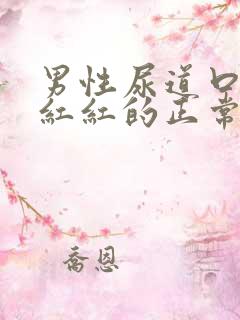 男性尿道口
紅紅的正常
喬恩